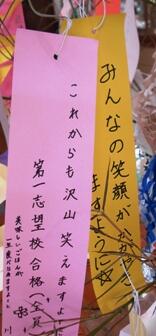 みんなの笑顔が
ますように☆
これからも沢山笑えますよ
第一志望校合格(全員
美味しいごはんが
一生食べられますように